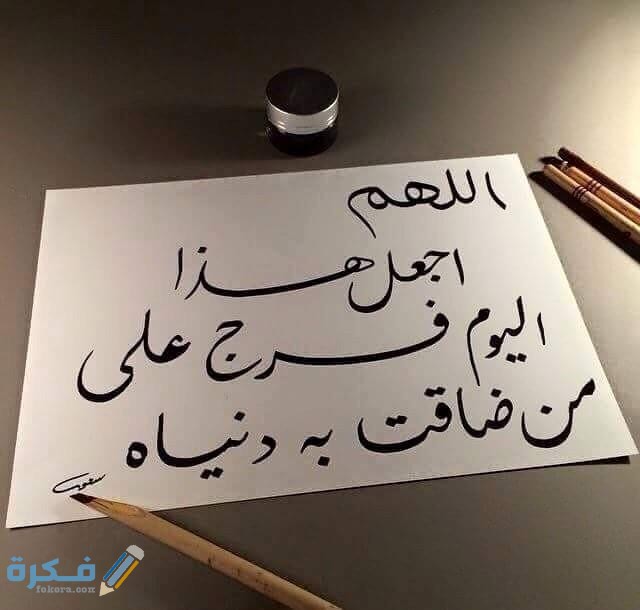 اللهم
اجعل هذا
اليوم فرج على
من ضاقت به دنياه
فكرة
fekera.com